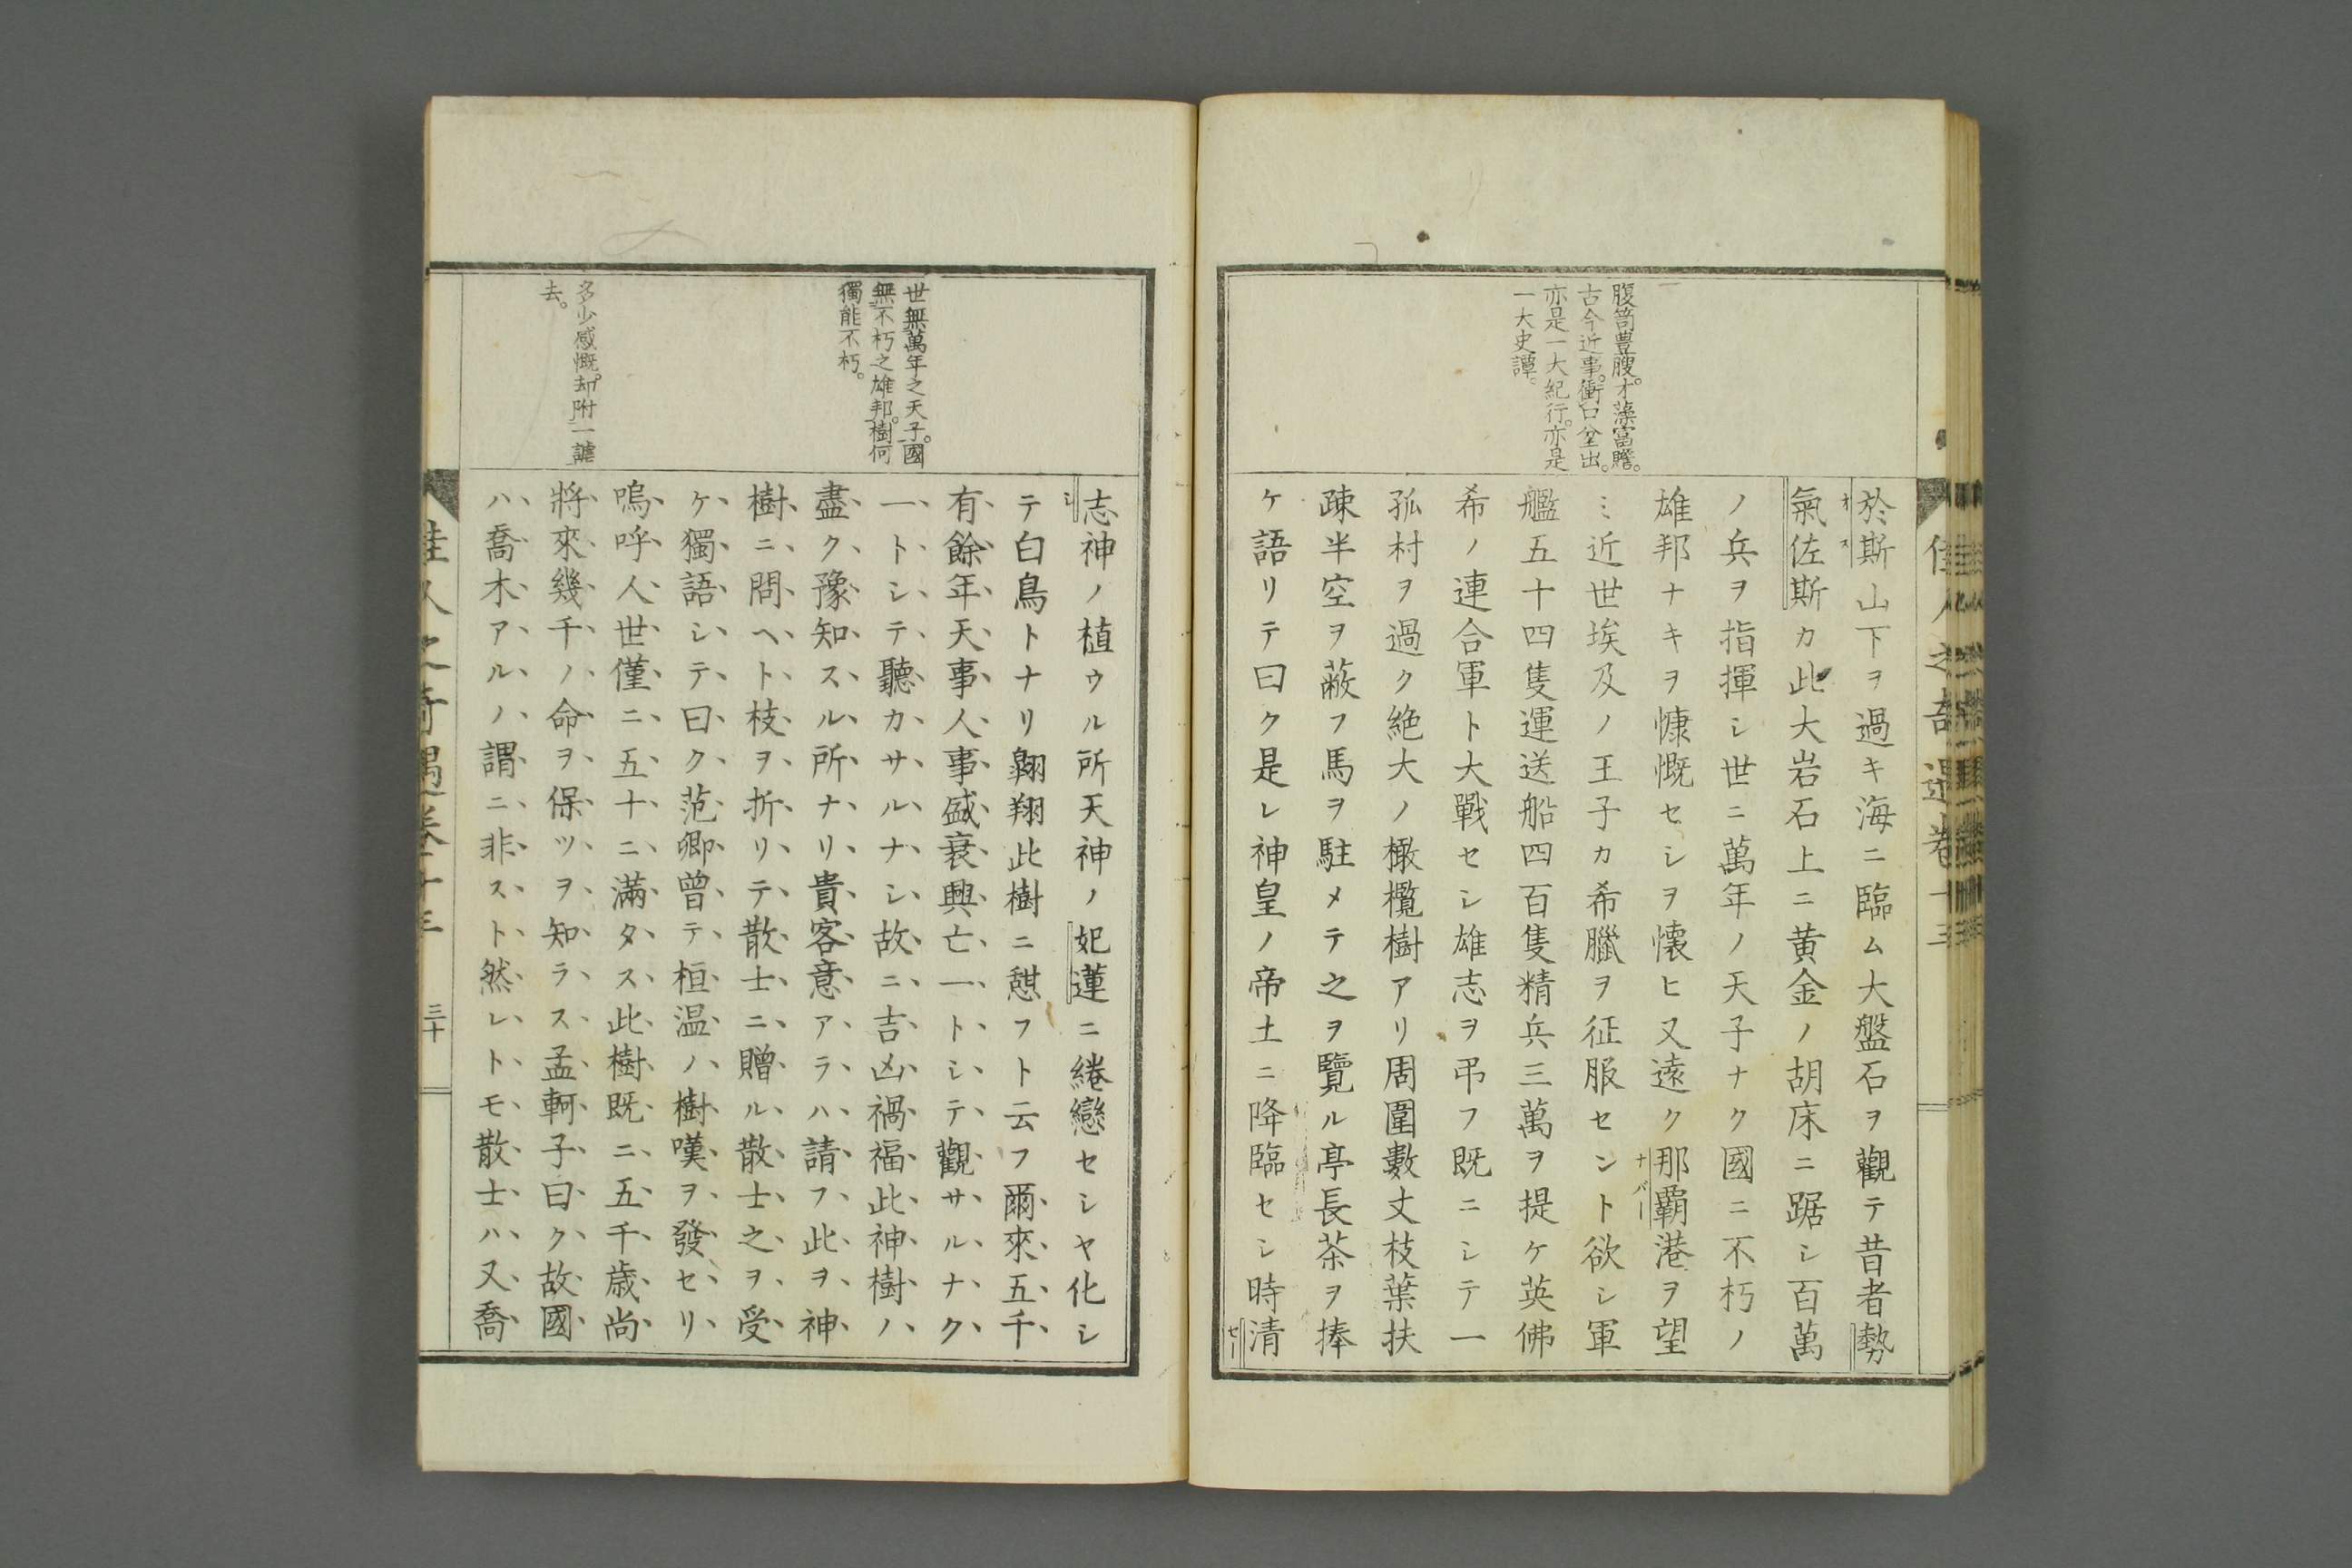 腹笥豊腴。才藻富贍。
古今近事。衝口全出。
亦是一大紀行。亦是
一大史譚。
於斯山下ヲ過キ海ニ臨ム大盤石ヲ觀テ昔者勢
氣佐斯カ此大岩石上ニ黄金ノ胡床ニ踞シ百萬
ノ兵ヲ指揮シ世ニ萬年ノ天子ナク國ニ不朽ノ
雄邦ナキヲ慷慨セシヲ懐ヒ又遠ク那覇港ヲ望
ミ近世埃及ノ王子カ希臘ヲ征服セント欲シ軍
艦五十四隻運送船四百隻精兵三萬ヲ提ケ英佛
希ノ連合軍ト大戰セシ雄志ヲ弔フ既ニシテ一
孤村ヲ過ク絶大ノ橄欖樹アリ周圍數丈枝葉扶
疎半空ヲ蔽フ馬ヲ駐メテ之ヲ覽ル亭長茶ヲ捧
ケ語リテ曰ク是レ神皇ノ帝土ニ降臨セシ時清
世無萬年之天子。國
無不朽之雄邦。樹何
獨能不朽。
多少感慨。却附一謔
去。
志神ノ植ウル所天神ノ妃蓮ニ綣戀セシヤ化シ
テ白鳥トナリ翺翔此樹ニ憩フト云フ爾來五千
有餘年天事人事盛衰興亡一トシテ觀サルナク
一トシテ聽カサルナシ故ニ吉凶禍福此神樹ノ
盡ク豫知スル所ナリ貴客意アラハ請フ此ヲ神
樹ニ問ヘト枝ヲ折リテ散士ニ贈ル散士之ヲ受
ケ獨語シテ曰ク范卿曾テ桓温ノ樹嘆ヲ發セリ
嗚呼人世僅ニ五十ニ滿タス此樹既ニ五千歳尚
將來幾千ノ命ヲ保ツヲ知ラス孟軻子曰ク故國
ハ喬木アルノ謂ニ非スト然レトモ散士ハ又喬
佳人之奇遇卷十三
三十